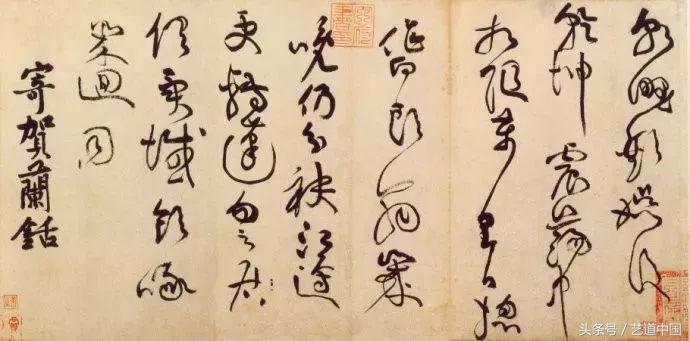 朝野歡娛後
乾坤震蕩中
相隨萬里日總
作白頭翁歲
晚仍分袂江邊
更轉蓬勿云
俱異域飲啄
幾迴同
寄賀蘭銛
头条号／艺道中国